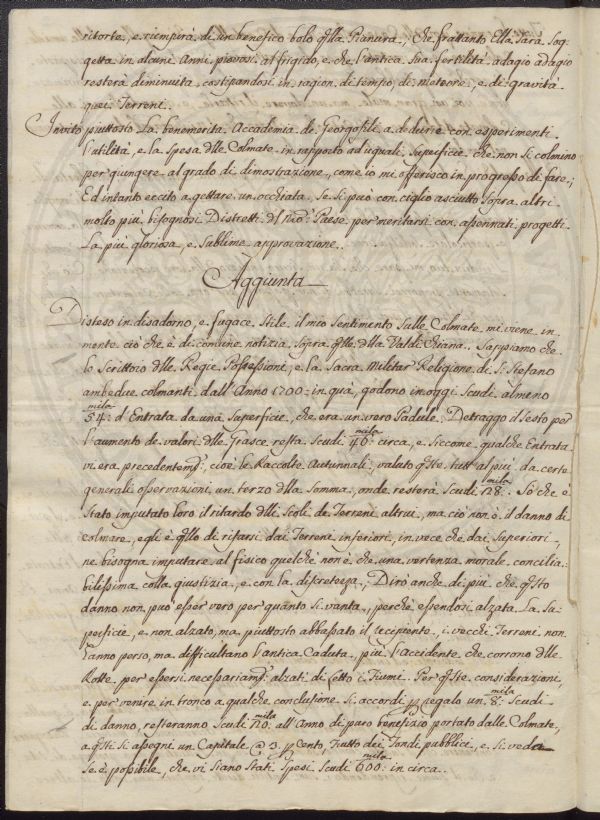 ritorte, e riempirà di un benefico bolo q.lla Pianura, che frattanto Ella sarà sog-
getta in alcuni Anni piovosi al frigido, e che l'antica sua fertilità adagio adagio
resterà diminuita, costipandosi in ragion di tempo, di meteore, e di gravità
quei Terreni.
Invito piuttosto La benemerita Accademia de' Georgofili a dedurre con esperimenti
l'utilità, e la spesa d.lle Colmate in rapporto ad uguali superficie che non si colmino
per giungere al grado di dimostrazione, come io mi offerisco in progresso di fare;
Ed intanto eccito a gettare un occhiata, se si può con ciglio asciutto sopra altri
molto più bisognosi Distretti d.l n.ro Paese per meritarsi con assennati progetti
La più gloriosa, e sublime approvazione.
Aggiunta
Disteso in disadorno, e fugace stile il mio sentimento sulle Colmate mi viene in
mente ciò che è di comune notizia sopra q.lle d.lla Valdichiana. Sappiamo che
lo Scrittoio d.lle Regie Possessioni, e la Sacra Militar Religione di S: Stefano
ambedue colmanti dall'Anno 1700: in quà, godono in oggi Scudi almeno
54:mila d'Entrata da una superficie, che era un vero Padule. Detraggo il sesto per
l'aumento de valori d.lle Grasce resta Scudi 40:mila circa, e siccome qualche Entrata
vi era precedentem.e: cioè le Raccolte Autunnali, valuto q.ste tutt'al più da certe
generali osservazioni un terzo d.lla somma, onde resterà Scudi 28:mila. Sò che è
stato imputato loro il ritardo d.lle Scoli de Terreni altrui, ma ciò non è il danno di
colmare, egli è q.llo di rifarsi dai Terreni inferiori, in vece che dai superiori,
ne bisogna imputare al fisico quelche non è che una vertenza morale concilia-
bilissima colla giustizia, e con la discretezza; Dirò anche di più che q.sto
danno non può esser vero per quanto si vanta, perchè essendosi alzata La su-
perficie, e non alzato, ma piuttosto abbassato il recipiente, i vecchi Terreni non
anno perso, ma difficultano l'antica Caduta, più l'accidente che corrono d.lle
Rotte per essersi necessariam.e: alzati di Letto i Fiumi. Per q.ste considerazioni,
e per venire in tronco a qualche conclusione si accordi p regalo un 8:mila Scudi
di danno, resteranno Scudi 20:mila all'Anno di puro benefizio portato dalle Colmate,
a q.sti si assegni un Capitale @ 3. p Cento, Frutto dei Fondi pubblici, e si veda
se è possibile, che vi siano stati spesi Scudi 600:mila in circa.